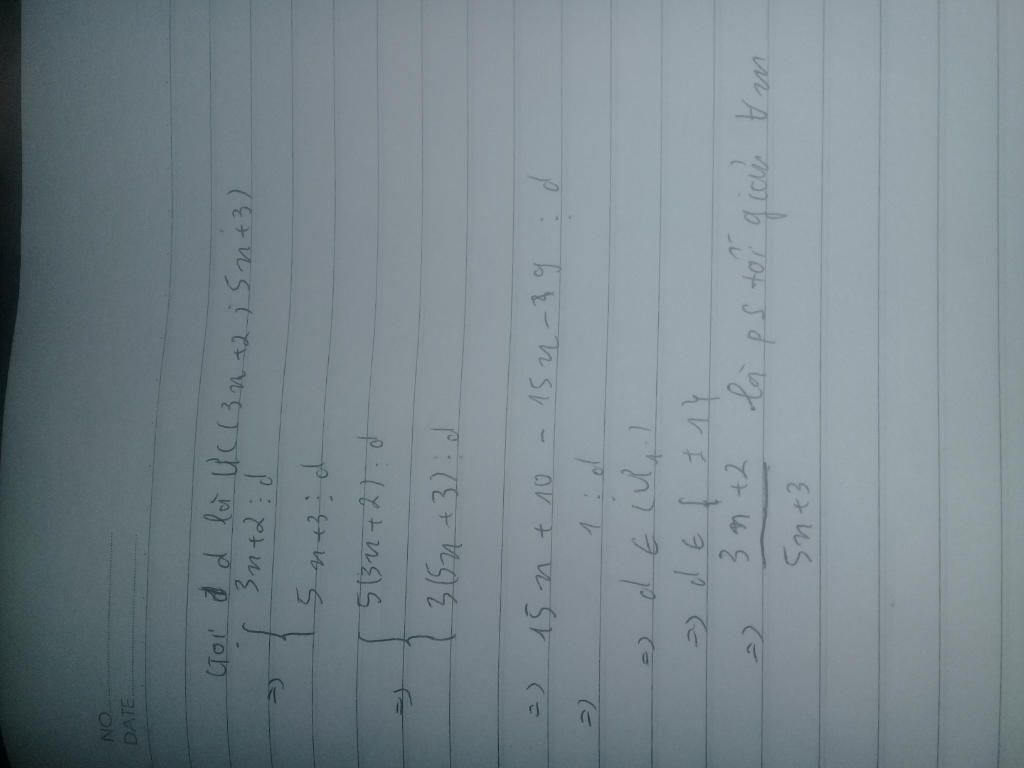 NO
DATE
Gọi d là ƯC(3n+2; 5n+3)
=> { 3n+2 ⋮ d
5n+3 ⋮ d
=> { 5(3n+2) ⋮ d
3(5n+3) ⋮ d
=> 15n + 10 - 15n - 9 ⋮ d
=> 1 ⋮ d
=> d ∈ Ư(1)
=> d ∈ { ± 1}
=> 3n+2 là ps tối giản ∀n
5n+3